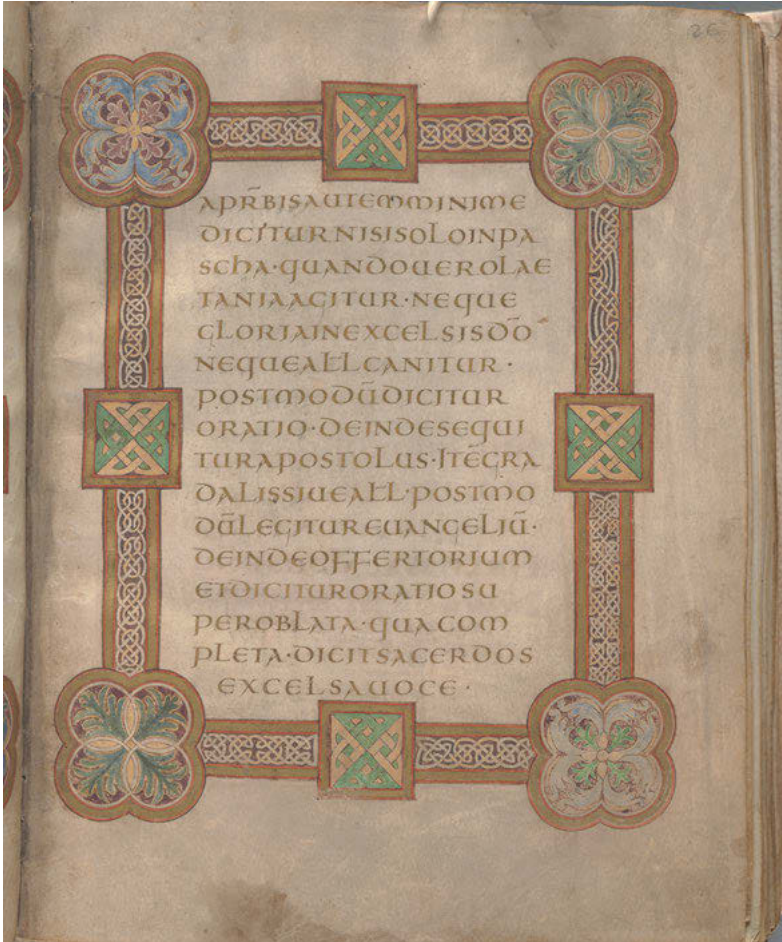 26
APR̄BISAUTEMMINIME
DICITURNISISOLOINPA
SCHA·QUANDOUEROLAE
TANIAAGITUR·NEQUE
GLORIAINEXCELSISDŌ
NEQUEALLCANITUR·
POSTMODŪDICITUR
ORATIO·DEINDESEQUI
TURAPOSTOLUS·ITĒGRA
DALISSIUEALL·POSTMO
DŪLEGITUREUANGELIŪ·
DEINDEOFFERTORIUM
ETDICITURORATIOSU
PEROBLATA·QUACOM
PLETA·DICITSACERDOS
EXCELSAUOCE·